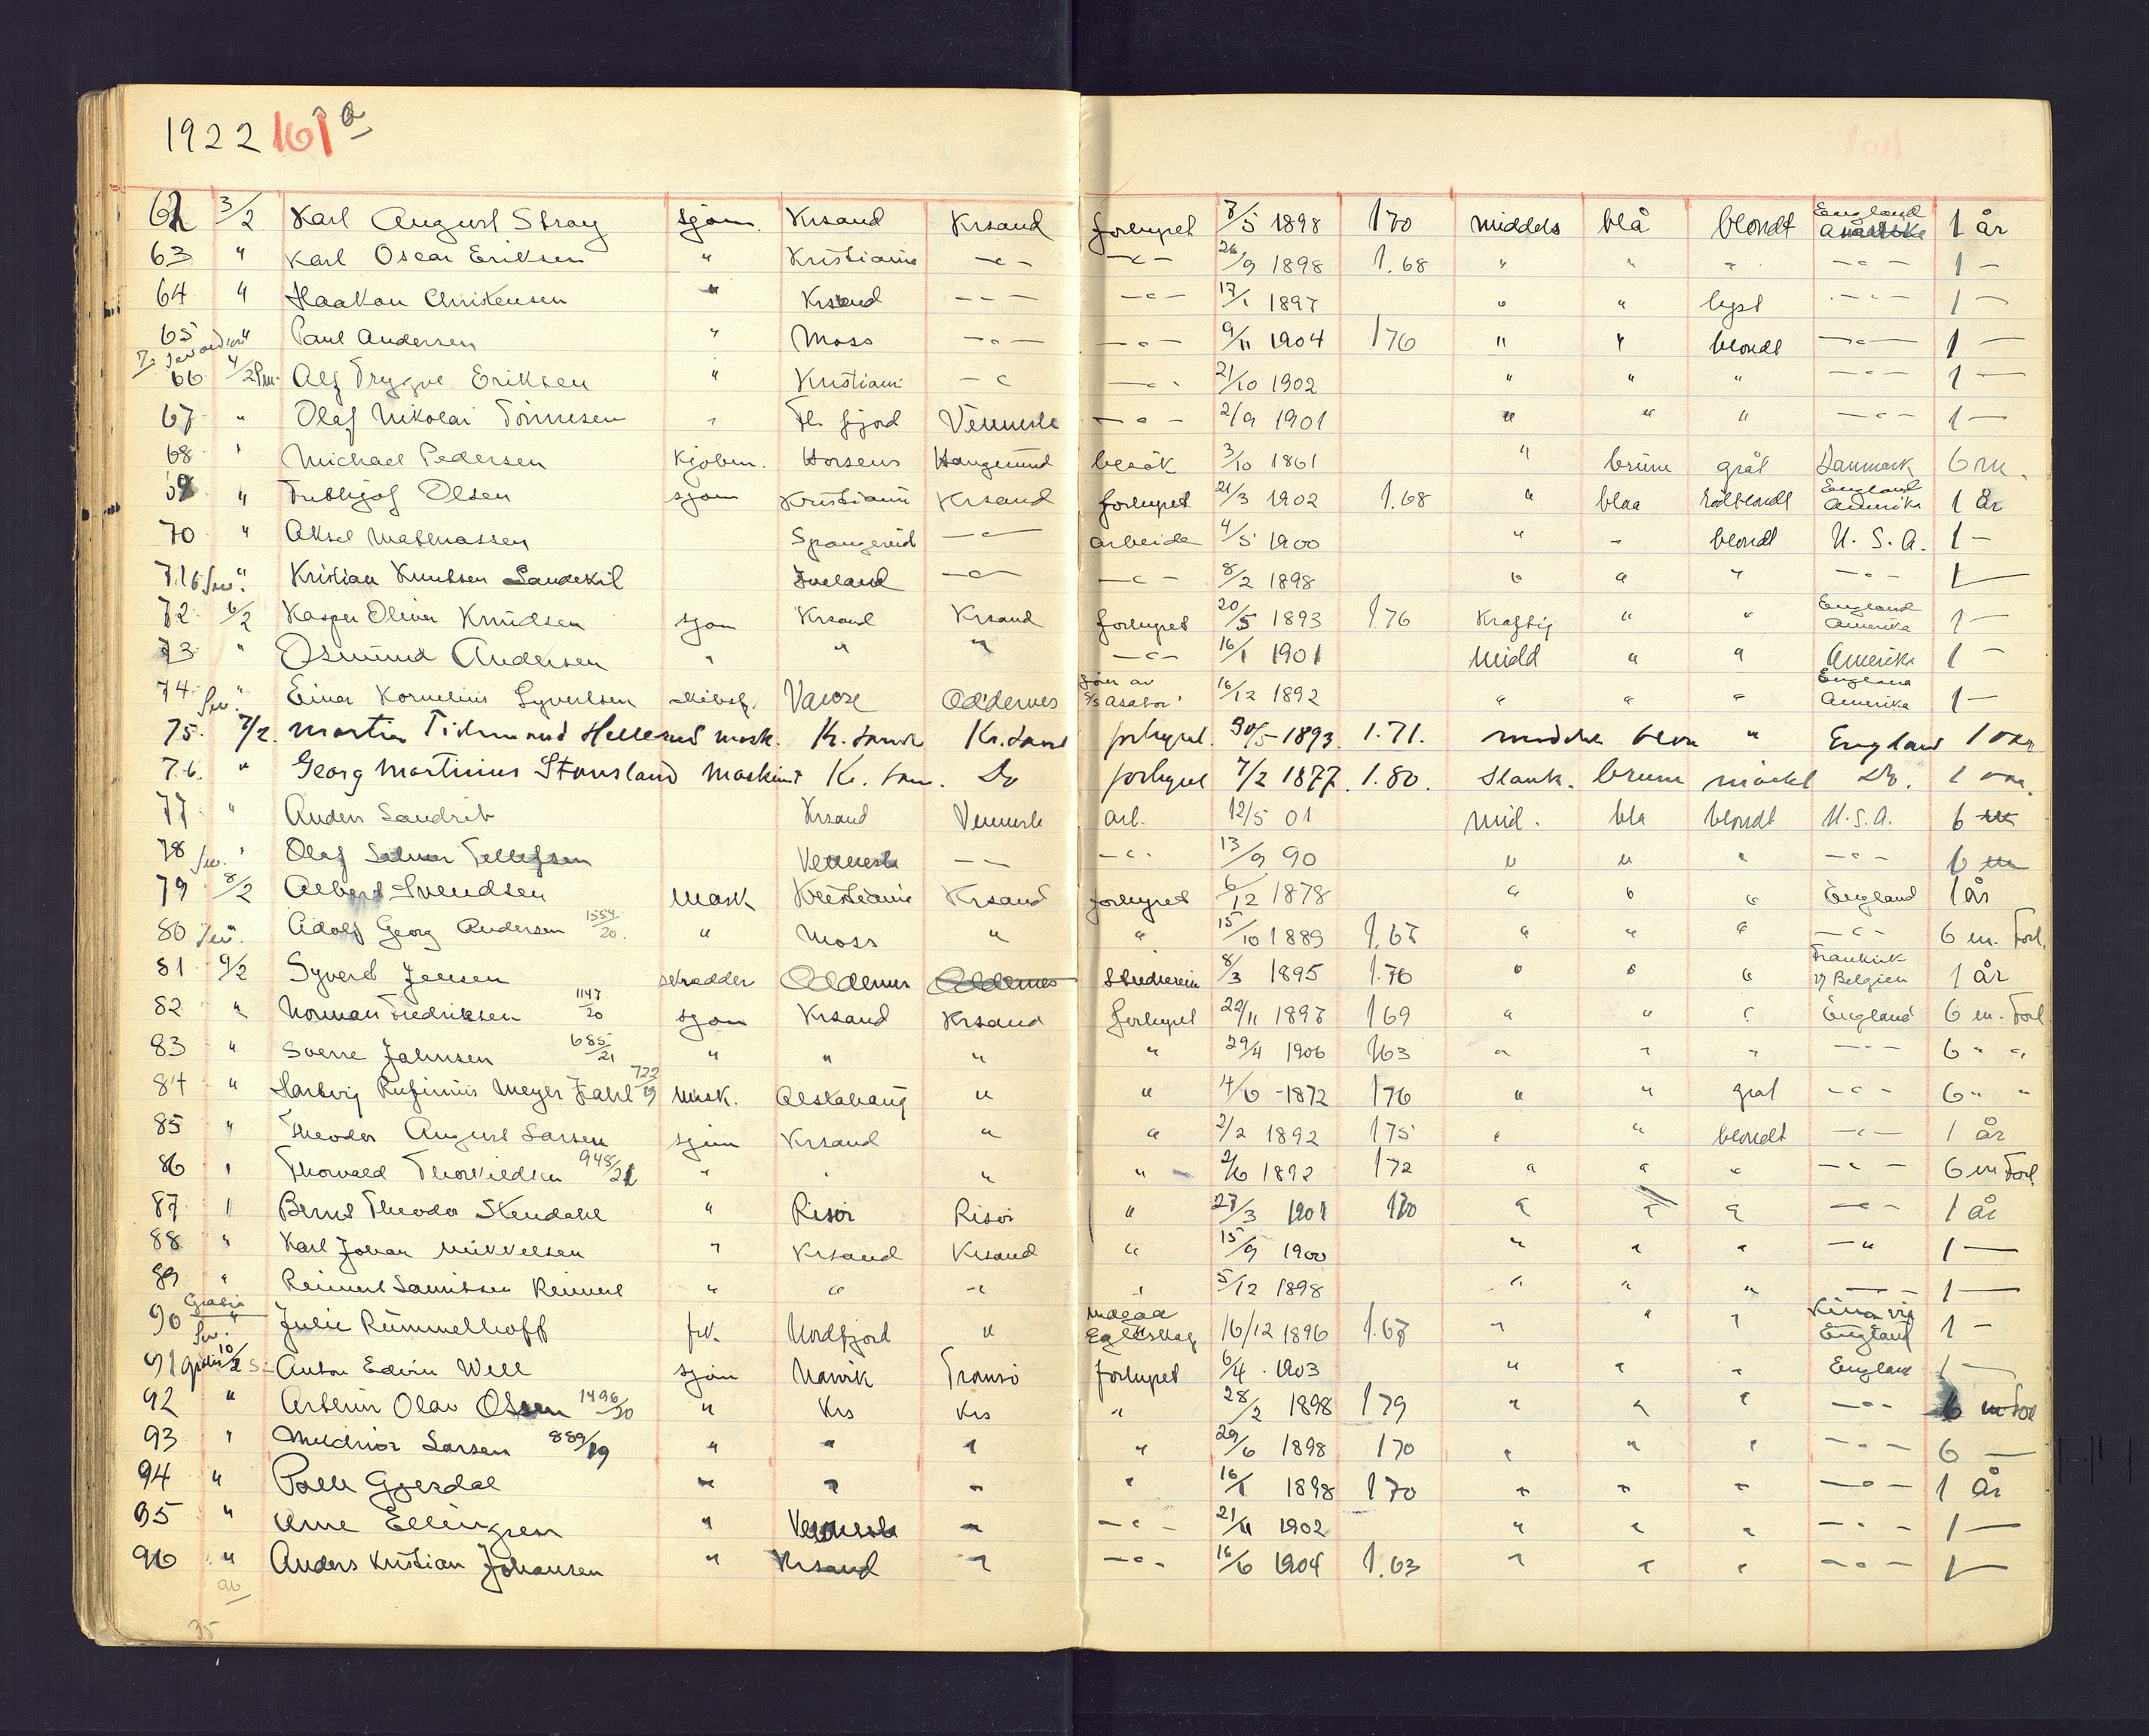 1922 161 a
62 3/2 Karl August Stray sjøm. Krsand Krsand forhyret 7/5 1898 170 middels blå blondt England Amerika 1 år
63 " Karl Oscar Eriksen " Kristiania —"— —"— 26/9 1898 1.68 " " " —"— 1 —
64 " Haakon Christensen " Krsand —"— —"— 17/1 1897 " " lyst —"— 1 —
65 " Paul Andersen " Moss —"— —"— 9/11 1904 176 " " blondt —"— 1 —
66 4/2 Alf Trygve Eriksen " Kristiani —"— —"— 21/10 1902 " " " —"— 1 —
67 " Olaf Nikolai Tönnesen " Fl. fjord Vennesla —"— 2/9 1901 " " " —"— 1 —
68 " Michael Pedersen Kjøbm. Horsens besök 3/10 1861 " brune gråt Danmark 6 m.
69 " Olsen sjøm Kristiania Krsand forhyret 21/3 1902 1.68 " blaa rödblondt England Amerika 1 år
70 " Aksel Mathiassen Spangereid —"— arbeide 4/5 1900 " " blondt U.S.A. 1 —
71 " Kristian Knutsen Iveland —"— —"— 8/2 1898 " " " —"— 1 —
72 6/2 Kasper Oliver Knudsen sjøm Krsand Krsand forhyret 20/5 1893 1.76 Kraftig " " England Amerika 1 —
73 " Osmund Andersen " " " —"— 16/1 1901 midd " " Amerika 1 —
74 " Einar Kornelius Syvertsen Oddernes 16/12 1892 " " " England Amerika 1 —
75. 7/2. Martin Hellesund mask. Kr.sand Kr.sand forhyret. 30/5-1893. 1.71. " England 1
76. " Georg Martinius Stousland Maskinist Kr. san. Do forhyret 7/2 1877. 1.80. Slank. brune mörkt Do. 1
77 " Anders Krsand Vennesla arb. 12/5 01 mid. bla blondt U.S.A. 6 m
78 " Olaf Tellefsen Vennesla —"— —"— 13/9 90 " " " —"— 6 m
79 8/2 Albert Svendsen Mask Kristiania Krsand forhyret 6/12 1878 " " " England 1 år
80 Adolf Georg Andersen 1554/20. " Moss " " 15/10 1889 1.67 " " " —"— 6 m. Forl.
81 9/2 Syvert Jensen skrædder Oddernes Oddernes 8/3 1895 1.76 " " " Frankrik Belgien 1 år
82 " Norman Fredriksen 1147/20 sjøm Krsand Krsand forhyret 22/11 1897 169 " " " England 6 m. Forl
83 " Sverre Jahnsen 685/21 " " " " 29/4 1906 163 " " " —"— 6 " "
84 " Hartvig Rufinius Meyer Zahl 722/19 Mask. Alstahaug " " 4/6 -1872 176 " " grat —"— 6 " "
85 " Theodor August Larsen sjøm Krsand " " 2/2 1892 175 " " blondt —"— 1 år
86 " Thorvald Thorkildsen 948/21 " " " " 2/6 1892 172 " " " —"— 6 m Forl
87 " Bernt Theodor Stendahl " Risör Risör " 27/3 1901 170 " " " —"— 1 år
88 " Karl Johan Mikkelsen " Krsand Krsand " 15/9 1900 " " " —"— 1 —
89 " Reinert " " " " 5/12 1898 " " " —"— 1 —
90 Gratis " Julie Rümmelhoff frk. Nordfjord " 16/12 1896 1.67 " " " Kina via England 1 —
91 gratis 10/2 Anton Edvin Well sjøm Narvik Tromsö forhyret 6/4 1903 " " " England 1 —
92 " Arthur Olav Olsen 1496/20 " Krs Krs " 28/2 1898 179 " " " —"— 6 m Forl
93 " Larsen 889/19 " " " " 29/6 1898 170 " " " —"— 6 —
94 " Gjerdal " " " " 16/1 1898 170 " " " —"— 1 år
95 " Arne Ellingsen " Vennesla " —"— 21/11 1902 " " " —"— 1 —
96 " Anders Kristian Johansen " Krsand " —"— 16/6 1904 1.63 " " " —"— 1 —
35